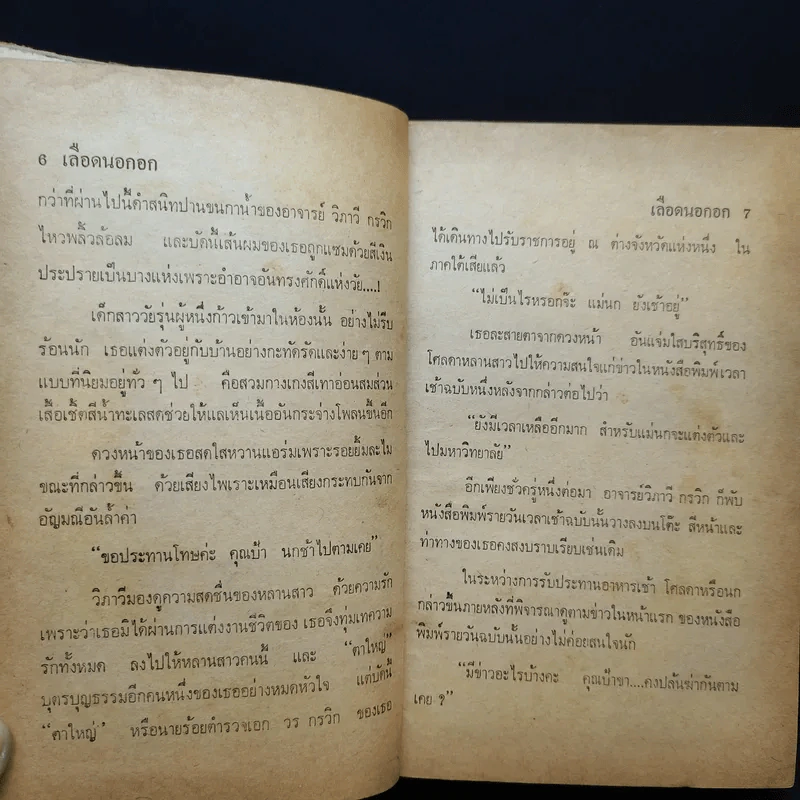 6 เลือดนอกอก
กว่าที่ผ่านไปนี้ดำสนิทปานขนกาน้ำของอาจารย์ วิภาวี กรวิก
ไหวพลิ้วล้อลม และบัดนี้เส้นผมของเธอถูกแซมด้วยสีเงิน
ประปรายเป็นบางแห่งเพราะอำอาจอันทรงศักดิ์แห่งวัย....!
เด็กสาววัยรุ่นผู้หนึ่งก้าวเข้ามาในห้องนั้น อย่างไม่รีบ
ร้อนนัก เธอแต่งตัวอยู่กับบ้านอย่างกะทัดรัดและง่าย ๆ ตาม
แบบที่นิยมอยู่ทั่ว ๆ ไป คือสวมกางเกงสีเทาอ่อนสมส่วน
เสื้อเชิ้ตสีน้ำทะเลสดช่วยให้แลเห็นเนื้ออันกระจ่างโพลนขึ้นอีก
ดวงหน้าของเธอสดใสหวานแอร่มเพราะรอยยิ้มละไม
ขณะที่กล่าวขึ้น ด้วยเสียงไพเราะเหมือนเสียงกระทบกันจาก
อัญมณีอันล้ำค่า
“ขอประทานโทษค่ะ คุณป้า นกช้าไปตามเคย”
วิภาวีมองดูความสดชื่นของหลานสาว ด้วยความรัก
เพราะว่าเธอมิได้ผ่านการแต่งงานชีวิตของ เธอจึงทุ่มเทความ
รักทั้งหมด ลงไปให้หลานสาวคนนี้ และ “ตาใหญ่”
บุตรบุญธรรมอีกคนหนึ่งของเธออย่างหมดหัวใจ แต่บัดนี้
“ตาใหญ่” หรือนายร้อยตำรวจเอก วร กรวิก ของเธอ
เลือดนอกอก 7
ได้เดินทางไปรับราชการอยู่ ณ ต่างจังหวัดแห่งหนึ่ง ใน
ภาคใต้เสียแล้ว
“ไม่เป็นไรหรอกจ๊ะ แม่นก ยังเช้าอยู่”
เธอละสายตาจากดวงหน้า อันแจ่มใสบริสุทธิ์ของ
โศลดาหลานสาวไปให้ความสนใจแก่ข่าวในหนังสือพิมพ์เวลา
เช้าฉบับหนึ่งหลังจากกล่าวต่อไปว่า
“ยังมีเวลาเหลืออีกมาก สำหรับแม่นกจะแต่งตัวและ
ไปมหาวิทยาลัย”
อีกเพียงชั่วครู่หนึ่งต่อมา อาจารย์วิภาวี กรวิก ก็พับ
หนังสือพิมพ์รายวันเวลาเช้าฉบับนั้นวางลงบนโต๊ะ สีหน้าและ
ท่าทางของเธอคงสงบราบเรียบเช่นเดิม
ในระหว่างการรับประทานอาหารเช้า โศลดาหรือนก
กล่าวขึ้นภายหลังที่พิจารณาดูตามข่าวในหน้าแรก ของหนังสือ
พิมพ์รายวันฉบับนั้นอย่างไม่ค่อยสนใจนัก
“มีข่าวอะไรบ้างคะ คุณป้าขา....คงปล้นฆ่ากันตาม
เคย ?”